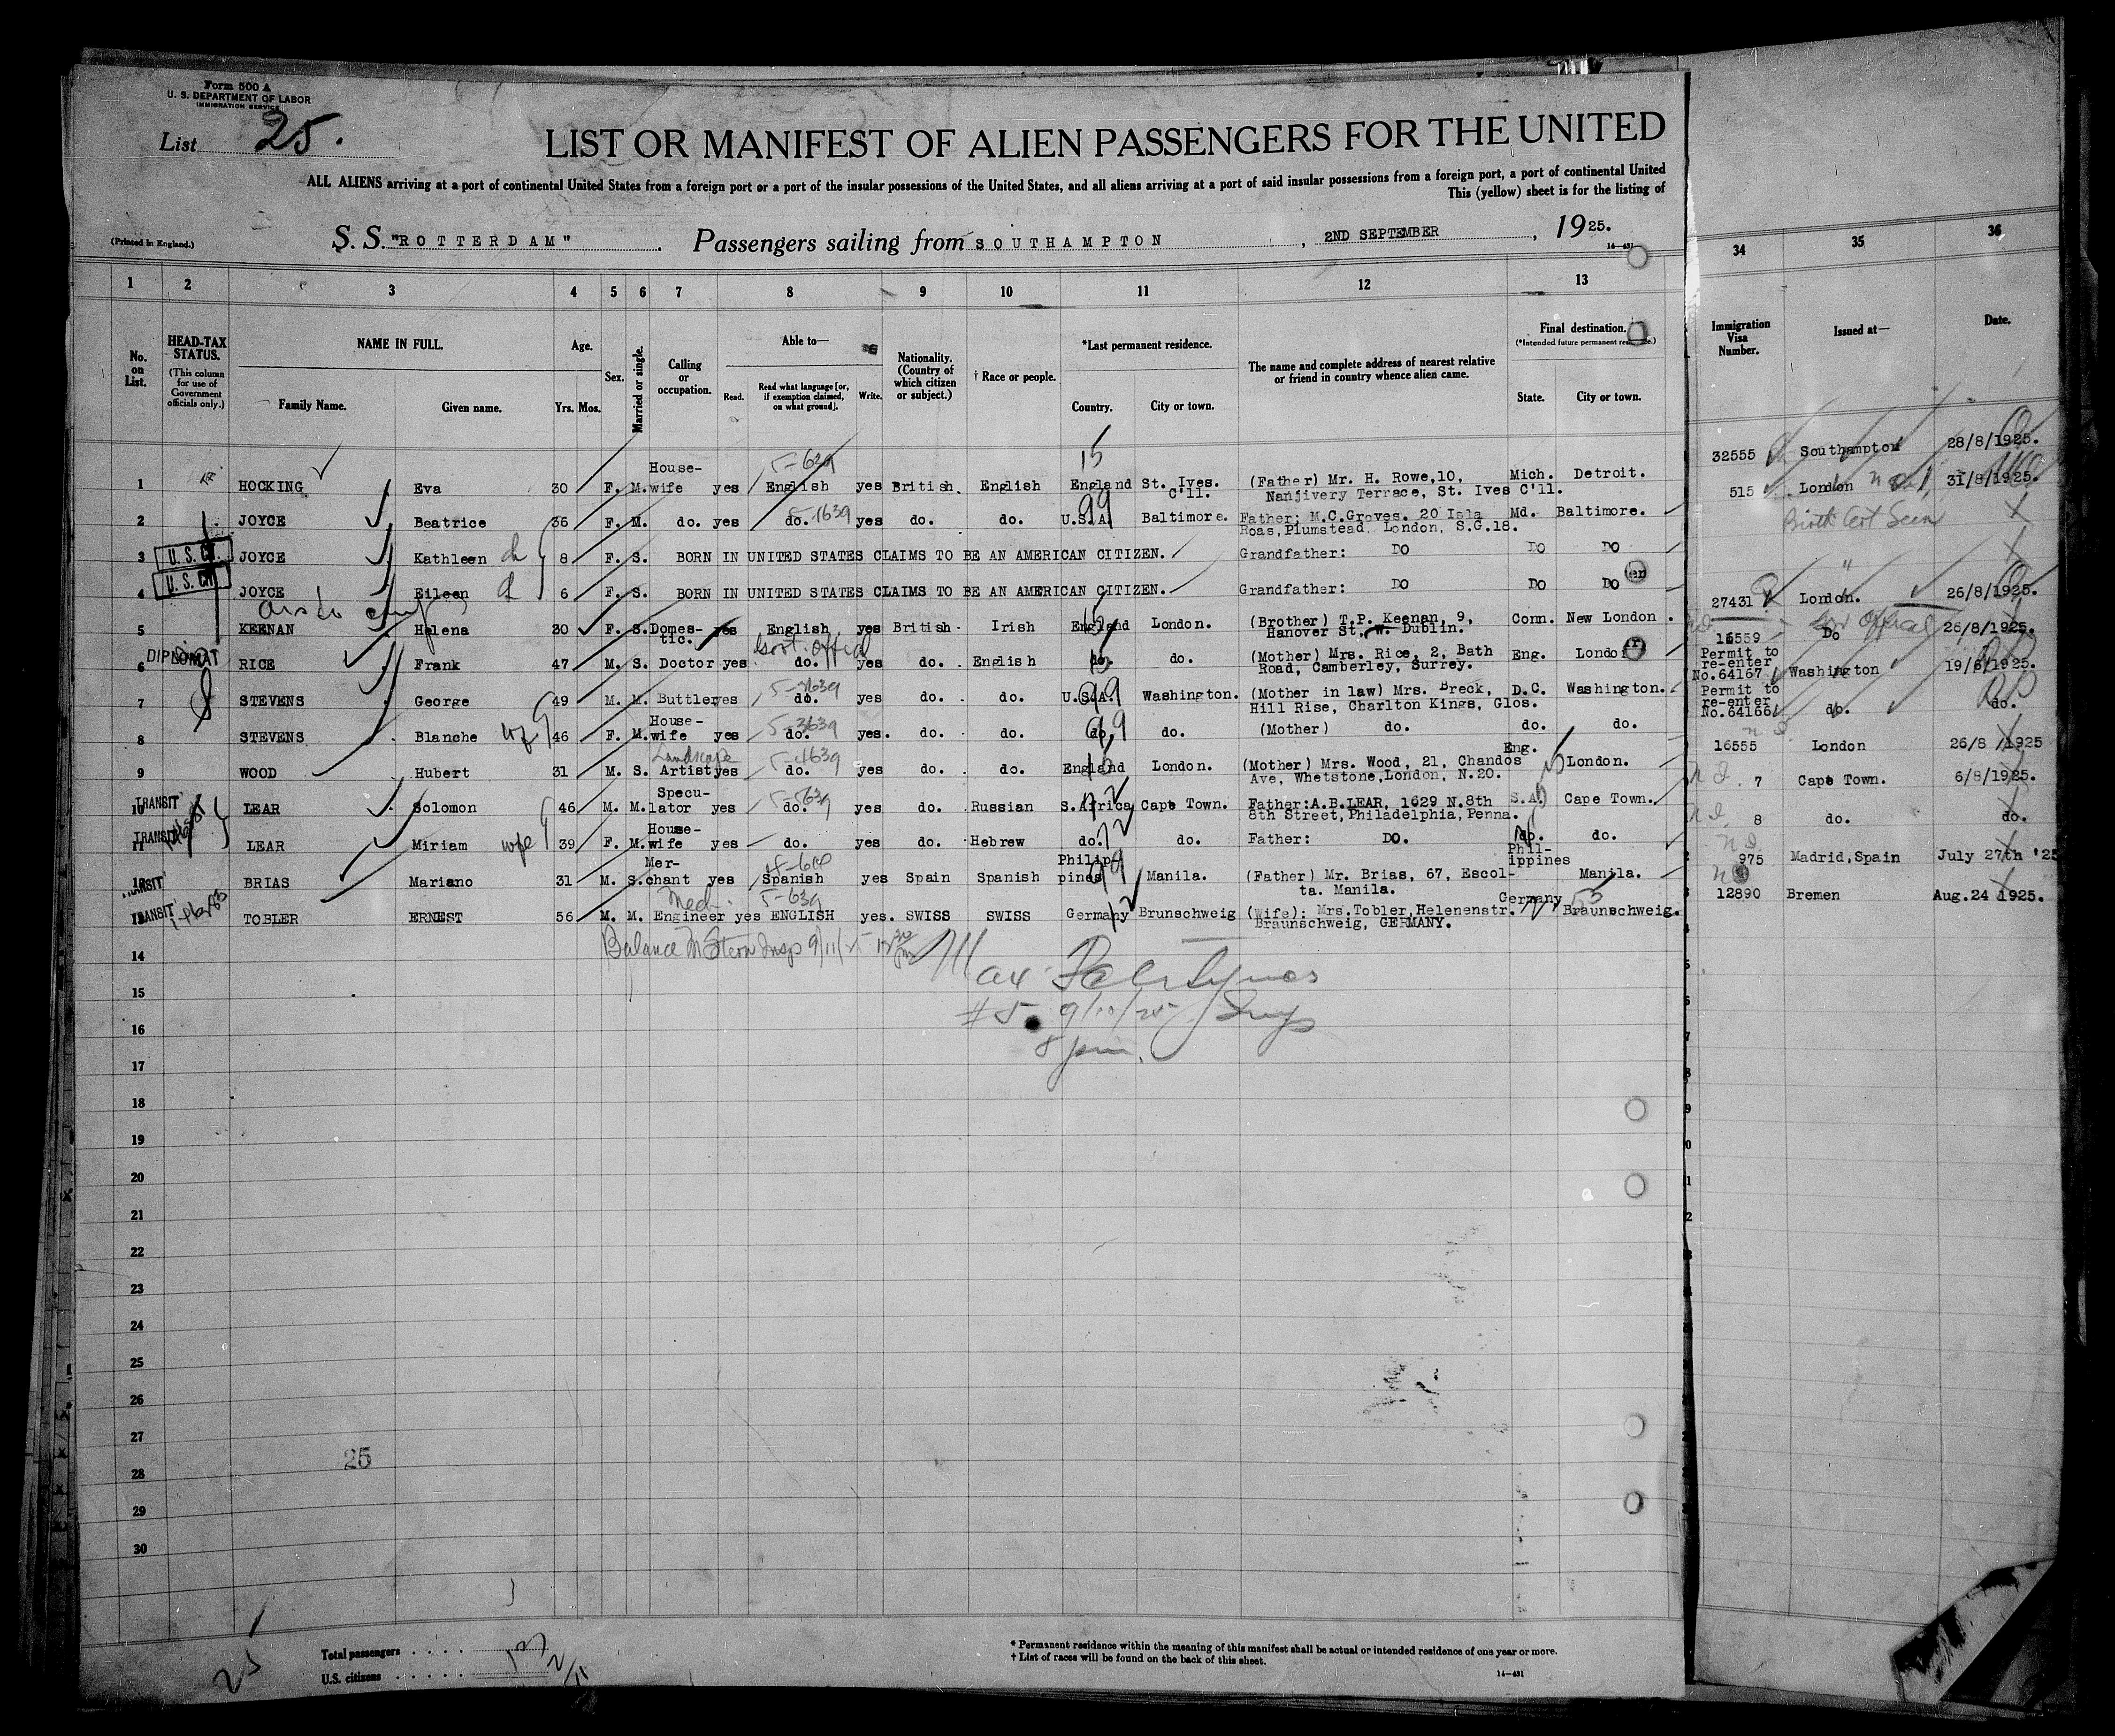 Form 500 A
U. S. DEPARTMENT OF LABOR
IMMIGRATION SERVICE
List 25.
LIST OR MANIFEST OF ALIEN PASSENGERS FOR THE UNITED
ALL ALIENS arriving at a port of continental United States from a foreign port or a port of the insular possessions of the United States, and all aliens arriving at a port of said insular possessions from a foreign port, a port of continental United
This (yellow) sheet is for the listing of
(Printed in England.)
S. S. "ROTTERDAM". Passengers sailing from SOUTHAMPTON, 2ND SEPTEMBER, 1925.
14—431
1 2 3 4 5 6 7 8 9 10 11 12 13 34 35 36
No. on List.
HEAD-TAX STATUS.
(This column for use of Government officials only.)
NAME IN FULL.
Family Name. Given name.
Age.
Yrs. Mos.
Sex.
Married or single.
Calling or occupation.
Able to—
Read. Read what language [or, if exemption claimed, on what ground]. Write.
Nationality. (Country of which citizen or subject.)
† Race or people.
*Last permanent residence.
Country. City or town.
The name and complete address of nearest relative or friend in country whence alien came.
Final destination.
State. City or town.
Immigration Visa Number.
Issued at—
Date.
1 HOCKING Eva 30 F. M. House-wife yes English yes British. English England St. Ives. C'll. (Father) Mr. H. Rowe,10, Nanjivery Terrace, St. Ives C'll. Mich. Detroit. 32555 Southampton 28/8/1925.
2 JOYCE Beatrice 36 F. M. do. yes do. yes do. do. U.S.A. Baltimore. Father: M.C.Groves. 20 Isla Roas,Plumstead, London, S.G.18. Md. Baltimore. 515 London 31/8/1925.
U. S. CIT.
3 JOYCE Kathleen ch 8 F. S. BORN IN UNITED STATES CLAIMS TO BE AN AMERICAN CITIZEN. Grandfather: DO DO DO Birth Cert Seen
U. S. CIT.
4 JOYCE Eileen 6 F. S. BORN IN UNITED STATES CLAIMS TO BE AN AMERICAN CITIZEN. Grandfather: DO DO DO "
5 KEENAN Helena 30 F. S. Domes-tic. yes English yes British Irish England London. (Brother) T.P. Keenan, 9, Hanover St. W. Dublin. Conn. New London. 27431 London. 26/8/1925.
DIPLOMAT
6 RICE Frank 47 M. S. Doctor yes Govt. Offical do. yes do. English do. do. (Mother) Mrs. Rice, 2, Bath Road, Camberley, Surrey. Eng. London 16559 Do 26/8/1925.
7 STEVENS George 49 M. M. Buttler yes do. yes do. do. U.S.A. Washington. (Mother in law) Mrs. Breck, Hill Rise, Charlton Kings, Glos. D.C. Washington. Permit to re-enter No.64167 Washington 19/6/1925.
8 STEVENS Blanche wf 46 F. M. House-wife yes do. yes. do. do. do. do. (Mother) do. do. do. Permit to re-enter No.64166 do. do.
9 WOOD Hubert 31 M. S. Landscape Artist yes do. yes do. do. England London. (Mother) Mrs. Wood, 21, Chandos Ave, Whetstone,London, N.20. Eng. London. 16555 London 26/8/1925
TRANSIT
10 LEAR Solomon 46 M. M. Specu-lator yes do. yes do. Russian S.Africa Cape Town. Father:A.B.LEAR, 1629 N.8th 8th Street,Philadelphia,Penna. S.A. Cape Town. 7 Cape Town. 6/8/1925.
TRANSIT
11 LEAR Miriam wife 39 F. M. House-wife yes do. yes do. Hebrew do. do. Father: DO. do. do. 8 do. do.
TRANSIT
12 BRIAS Mariano 31 M. S. Mer-chant yes Spanish yes Spain Spanish Philippines Manila. (Father) Mr. Brias, 67, Escol-ta. Manila. Phil-ippines Manila. 975 Madrid,Spain July 27th '25
TRANSIT
13 TOBLER ERNEST 56 M. M. Mech. Engineer yes ENGLISH yes. SWISS SWISS Germany Brunschweig (Wife): Mrs.Tobler,Helenenstr. Braunschweig, GERMANY. Germany Braunschweig. 12890 Bremen Aug.24 1925.
14 Balance M Stern Insp 9/11/25
15
16 #5 9/11/25 Insp
8 pm.
17
18
19
20
21
22
23
24
25
26
27
28 25
29
30
25
Total passengers . . . . 13
U.S. citizens . . . . . 2/11
* Permanent residence within the meaning of this manifest shall be actual or intended residence of one year or more.
† List of races will be found on the back of this sheet.
14—431